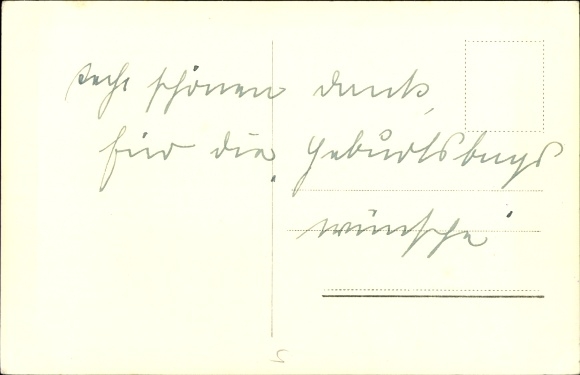 Recht schönen Dank,
für die Geburtstags
wünsche